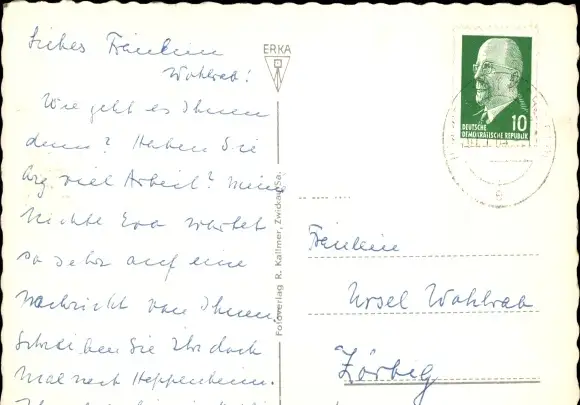 Liebes Fräulein
Wohlrab!
Wie geht es Ihnen
denn? Haben Sie
arg viel Arbeit? Meine
Nichte Eva wartet
so sehr auf eine
Nachricht von Ihnen.
Schreiben Sie Ihr doch
mal nach Heppenheim.
ERKA
Fotoverlag R. Kallmer, Zwickau/Sa.
10
DEUTSCHE
DEMOKRATISCHE REPUBLIK
Fräulein
Ursel Wohlrab
Zörbig